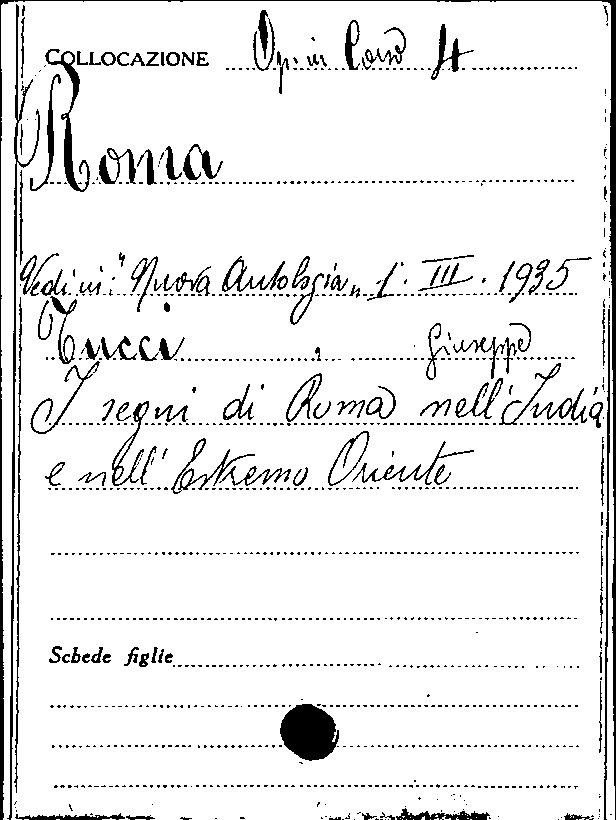 COLLOCAZIONE Op. in Corso 4
Roma
Vedi in: "Nuova Antologia„ 1°. III. 1935
Tucci , Giuseppe
I segni di Roma nell'India
e nell'Estremo Oriente
Schede figlie